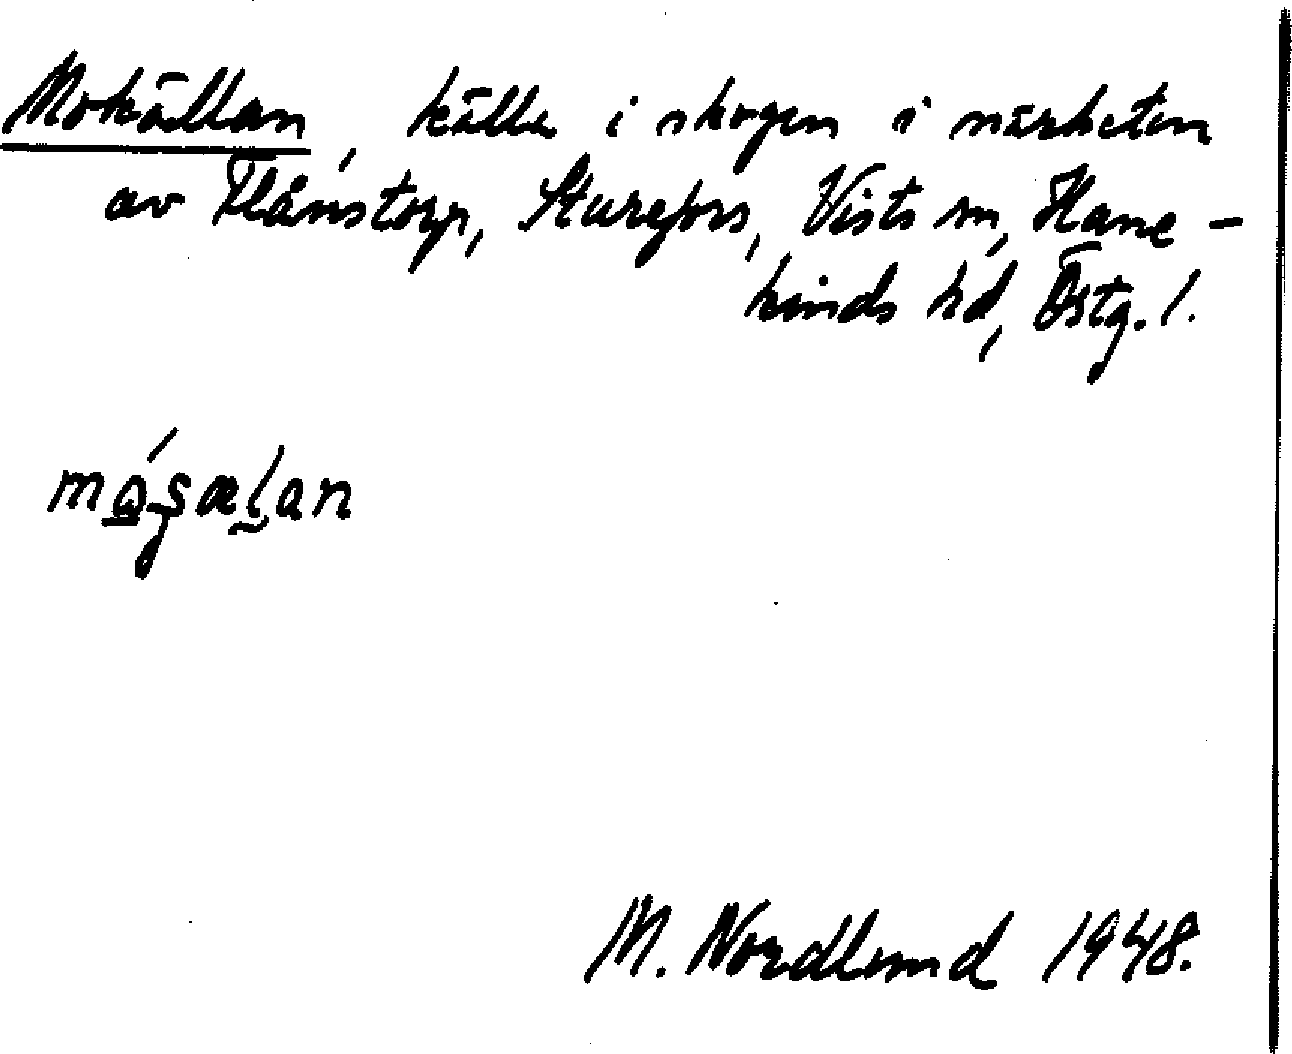 Mokällan, källa i skogen i närheten
av Flånstorp, Sturefors, Vists sn, Hane-
kinds hd, Östg. l.
M. Nordlund 1948.